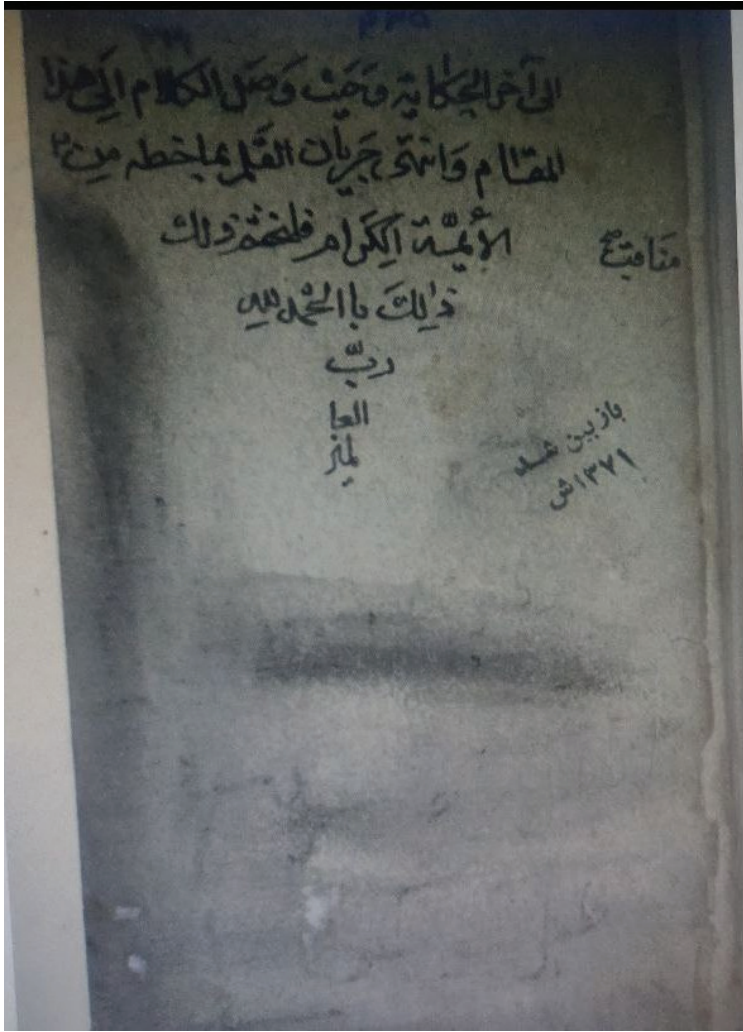 الى آخر الحكاية وحيث وصل الكلام الى هذا
المقام وانتهى جريان القلم بما خطه من
مناقب صح
الأئِمّة الكرام فلنختم ذلك
ذٰلِكَ باالحمد لله
ربّ
العا
لمين
بازبین شد
۱۳۷۱ش